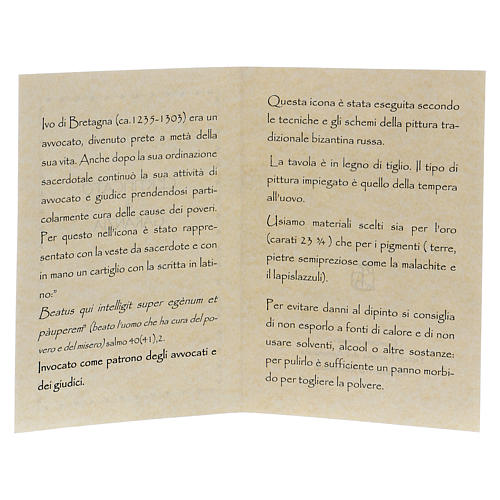 Ivo di Bretagna (ca.1235-1303) era un
avvocato, divenuto prete a metà della
sua vita. Anche dopo la sua ordinazione
sacerdotale continuò la sua attività di
avvocato e giudice prendendosi parti-
colarmente cura delle cause dei poveri.
Per questo nell'icona è stato rappre-
sentato con la veste da sacerdote e con
in mano un cartiglio con la scritta in lati-
no:"
Beatus qui intelligit super egènum et
pàuperem" (beato l'uomo che ha cura del po-
vero e del misero) salmo 40(41),2.
Invocato come patrono degli avvocati e
dei giudici.
Questa icona è stata eseguita secondo
le tecniche e gli schemi della pittura tra-
dizionale bizantina russa.
La tavola è in legno di tiglio. Il tipo di
pittura impiegato è quello della tempera
all'uovo.
Usiamo materiali scelti sia per l'oro
(carati 23 ¾ ) che per i pigmenti ( terre,
pietre semipreziose come la malachite e
il lapislazzuli).
Per evitare danni al dipinto si consiglia
di non esporlo a fonti di calore e di non
usare solventi, alcool o altre sostanze:
per pulirlo è sufficiente un panno morbi-
do per togliere la polvere.